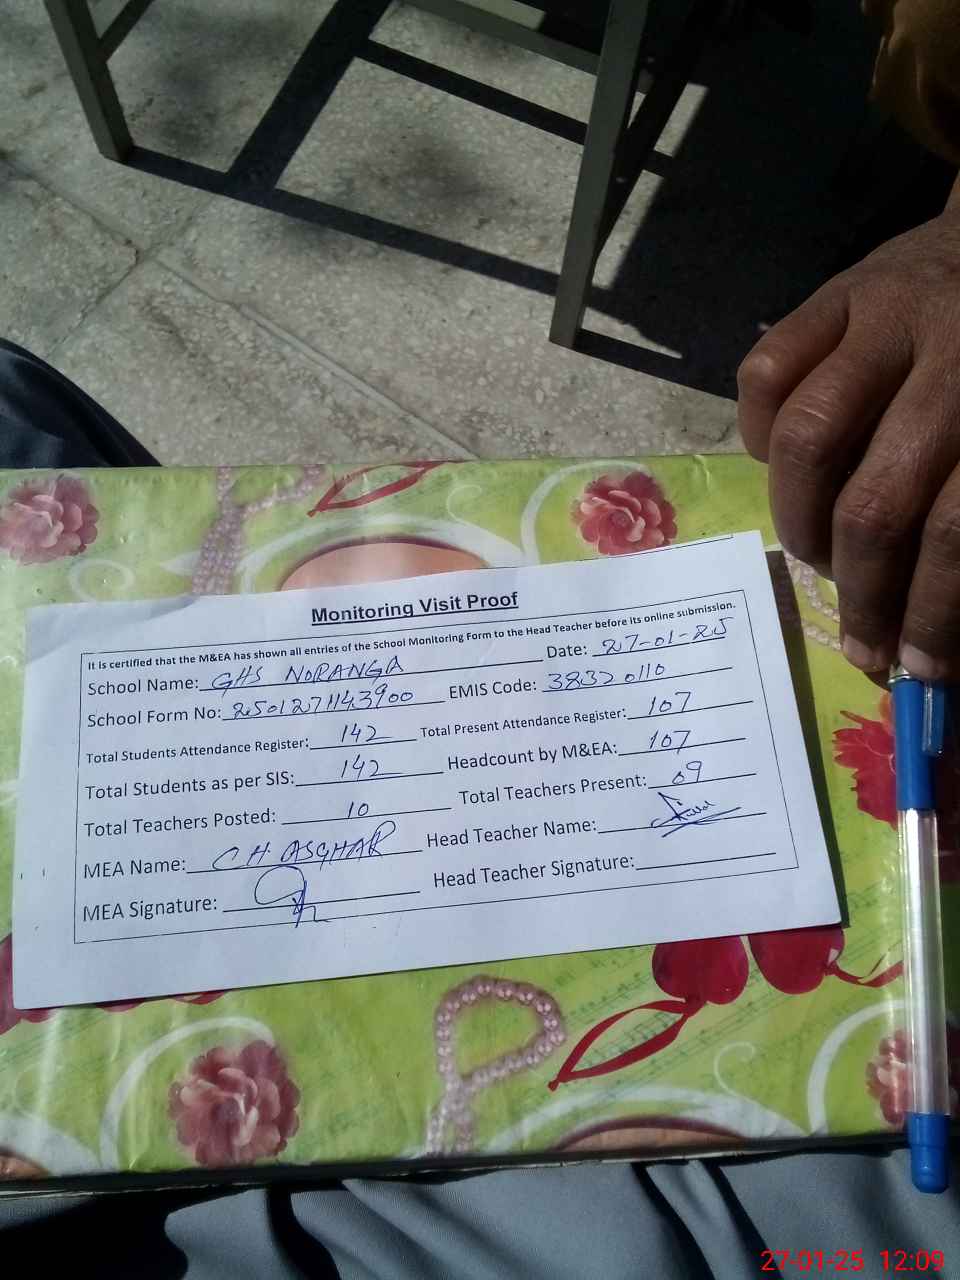 Monitoring Visit Proof
It is certified that the M&EA has shown all entries of the School Monitoring Form to the Head Teacher before its online submission.
School Name: GHS NORANGA Date: 27-01-25
School Form No: 2501271143900 EMIS Code: 38320110
Total Students Attendance Register: 142 Total Present Attendance Register: 107
Total Students as per SIS: 142 Headcount by M&EA: 107
Total Teachers Posted: 10 Total Teachers Present: 09
MEA Name: CH ASGHAR Head Teacher Name:
MEA Signature: Head Teacher Signature:
27-01-25 12:09